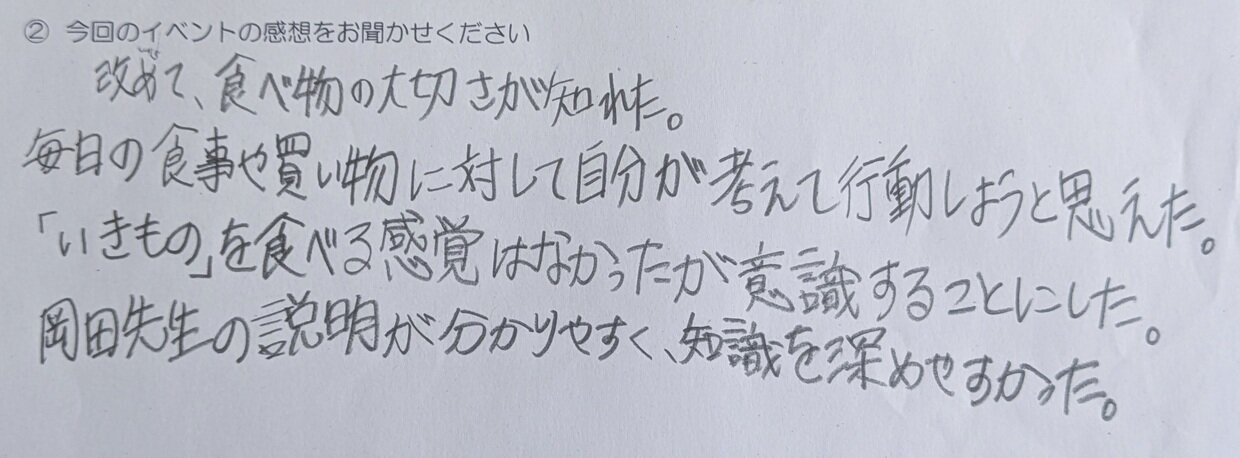 ② 今回のイベントの感想をお聞かせください
改めて、食べ物の大切さが知れた。
毎日の食事や買い物に対して自分が考えて行動しようと思えた。
「いきもの」を食べる感覚はなかったが意識することにした。
岡田先生の説明が分かりやすく、知識を深めやすかった。